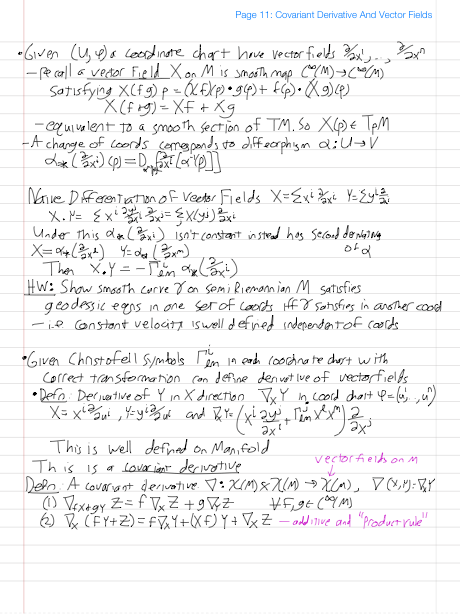 Page 11: Covariant Derivative And Vector Fields
• Given (U, φ) a coordinate chart have vector fields ∂/∂x¹, ..., ∂/∂xⁿ
– recall a vector field X on M is smooth map C^∞(M) → C^∞(M)
satisfying X(fg)p = (Xf)(p)·g(p) + f(p)·(Xg)(p)
X(f+g) = Xf + Xg
– equivalent to a smooth section of TM. So X(p) ∈ TpM
– A change of coords corresponds to diffeorphism α: U → V
Naive Differentiation of Vector Fields X = Σxⁱ ∂/∂xⁱ Y = Σyⁱ ∂/∂xⁱ
X.Y = Σ xⁱ ∂yʲ/∂xⁱ ∂/∂xʲ = Σ X(yʲ) ∂/∂xʲ
Under this α_*(∂/∂xⁱ) isn't constant instead has second derivatives of α
X = α_*(∂/∂xˡ) Y = α_*(∂/∂xᵐ)
Then X.Y = –Γⁱ_lm α_*(∂/∂xⁱ)
HW: Show smooth curve γ on semi Riemannian M satisfies
geodessic eqns in one set of coords iff γ satisfies in another coord
– i.e constant velocity is well defined independent of coords
• Given Christofell symbols Γⁱ_lm in each coordinate chart with
correct transformation can define derivative of vector fields
• Defn: Derivative of Y in X direction ∇_X Y in coord chart φ = (u¹, .., uⁿ)
X = xⁱ ∂/∂uⁱ, Y = yⁱ ∂/∂uⁱ and ∇_X Y = (xⁱ ∂yʲ/∂xⁱ + Γʲ_lm xˡ yᵐ) ∂/∂xʲ
This is well defined on Manifold
This is a covariant derivative
vector fields on M
Defn: A covariant derivative ∇: 𝔛(M) × 𝔛(M) → 𝔛(M), ∇(X,Y) = ∇_X Y
(1) ∇_{fX+gY} Z = f∇_X Z + g∇_Y Z ∀f,g ∈ C^∞(M)
(2) ∇_X (fY+Z) = f∇_X Y + (Xf)Y + ∇_X Z – additive and "product rule"